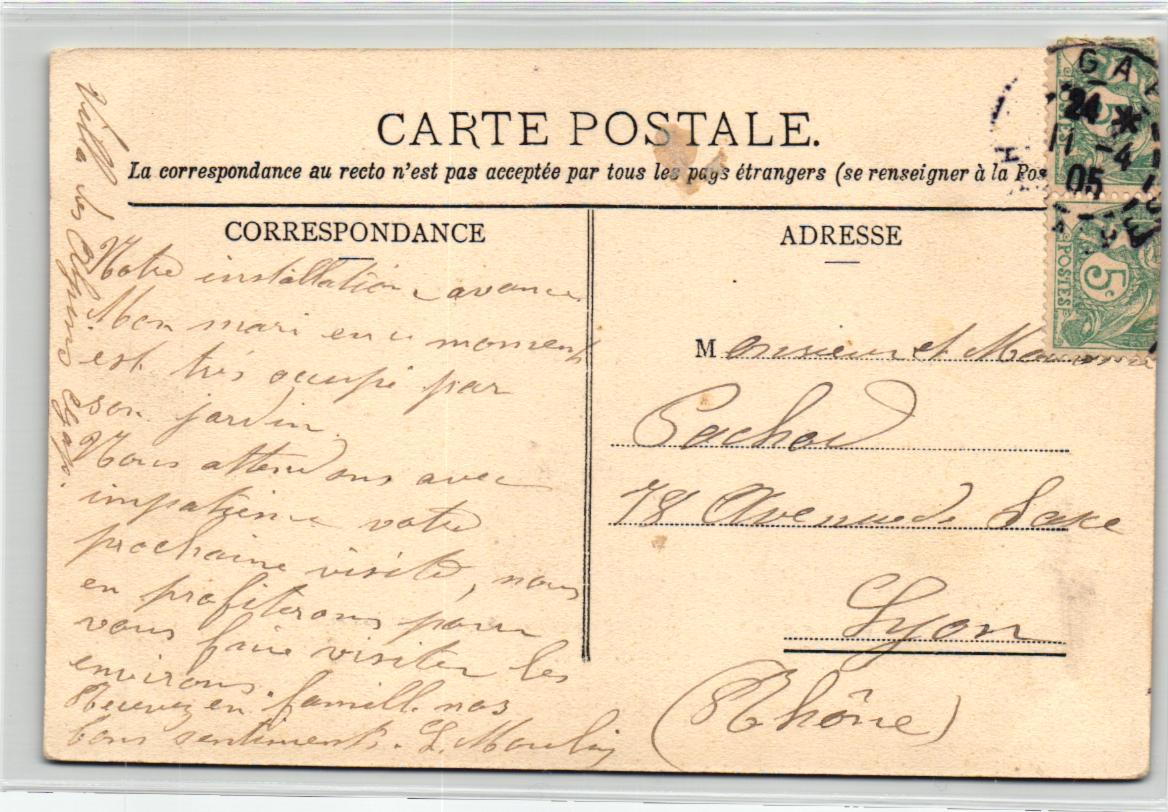 CARTE POSTALE.
La correspondance au recto n'est pas acceptée par tous les pays étrangers (se renseigner à la Pos
CORRESPONDANCE
Notre installation avance
Mon mari en ce moment
est très occupé par
son jardin.
Nous attendons avec
impatience votre
prochaine visite, nous
en profiterons pour
vous faire visiter les
environs.
Recevez en famille nos
bons sentiments. L. Moulin
Villa des Alpins Gap.
ADRESSE
Monsieur et Madame
Pachoud
78 Avenue de Saxe
Lyon
(Rhône)
GA
24 *
11 -4
05
5c
POSTES
5